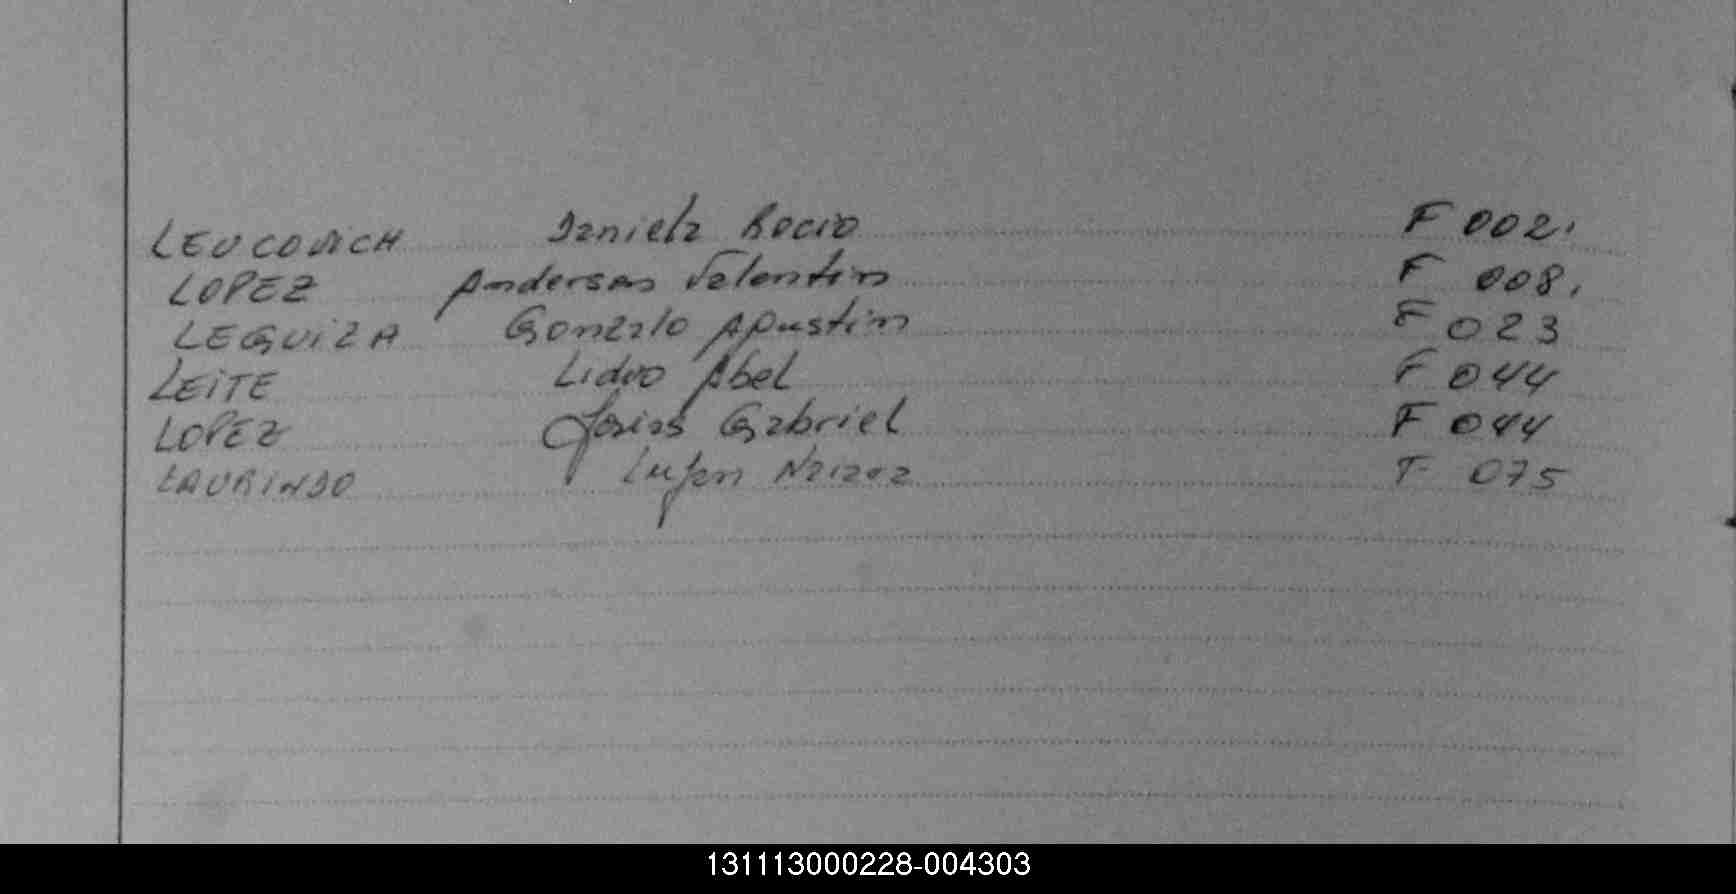 LEUCOVICH Daniela Rocio F 002.
LOPEZ Anderson Valentin F 008.
LEGUIZA Gonzalo Agustin F 023
LEITE Abel F 044
LOPEZ Gabriel F 044
LAURINDO Lujan F 075
131113000228-004303